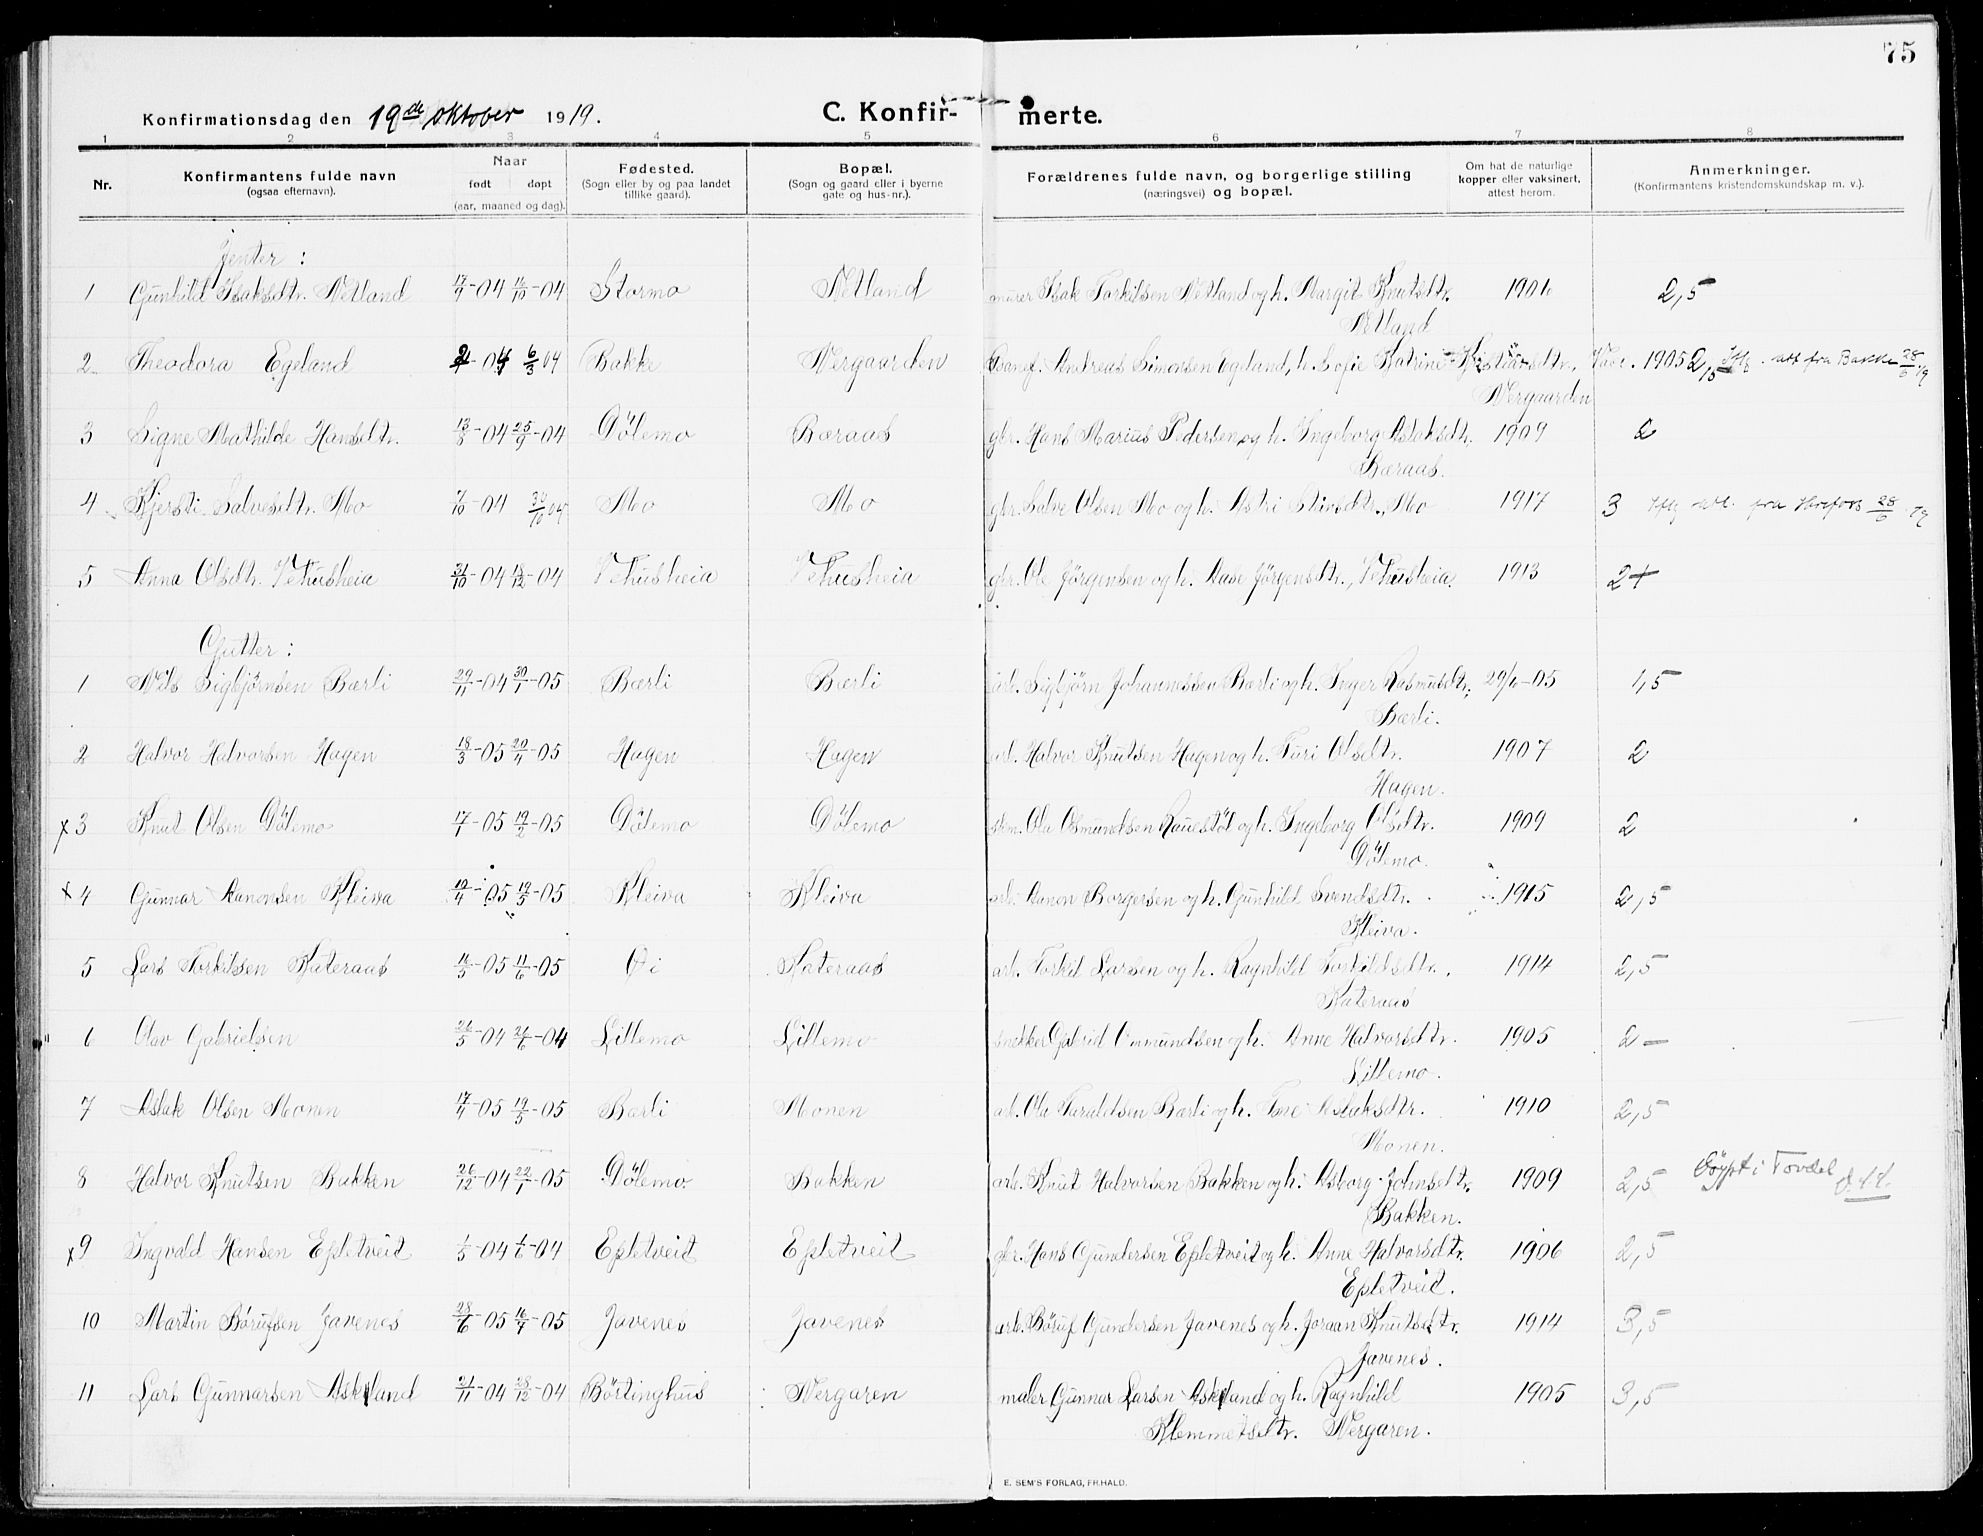 75
Konfirmationsdag den 19de oktober 1919. C. Konfir- merte.
1 2 3 4 5 6 7 8
Nr. Konfirmantens fulde navn (ogsaa efternavn). Naar født døpt (aar, maaned og dag). Fødested. (Sogn eller by og paa landet tillike gaard). Bopæl. (Sogn og gaard eller i byerne gate og hus-nr.). Forældrenes fulde navn, og borgerlige stilling (næringsvei) og bopæl. Om hat de naturlige kopper eller vaksinert, attest herom. Anmerkninger. (Konfirmantens kristendomskundskap m. v.).
Jenter :
1 Gunhild Isaksdtr. Netland 17/9-04 16/10-04 Stormo Netland murer Isak Torkilsen Netland og h. Margit Knutsdtr. 1906 2,5
Netland
2 Theodora Egeland -04 6/3 04 Bakke Nergaarden Andreas Simonsen Egeland, h. Sofie Katrine Kristiansdtr., Vacc. 1905 2,5 att fra Bakke 28/6 19
Nergaarden
3 Signe Mathilde Hansdtr. 13/8-04 25/9-04 Dölemo Bæraas gbr. Hans Marius Pedersen og h. Ingeborg Aslaksdtr. 1909 2
Bæraas.
4 Kjersti Salvesdtr. Mo 7/10-04 30/10 04 Mo Mo gbr. Salve Olsen Mo og h. Astri Stiansdtr., Mo 1917 3 att. fra 28/6 19
5 Anna Olsdtr. Vehusheia 31/10-04 18/12-04 Vehusheia Vehusheia gbr. Ole Jörgensen og h. Aase Jörgensdtr., Vehusheia 1913 2+
Gutter :
1 Nils Sigbjörnsen Bærli 29/11-04 30/1-05 Bærli Bærli arb. Sigbjörn Johannessen Bærli og h. Inger Rasmusdtr. 29/6-05 1,5
Bærli.
2 Halvor Halvorsen Hagen 18/3-05 20/4-05 Hagen Hagen arb. Halvor Knutsen Hagen og h. Turi Olsdtr. 1907 2
Hagen.
x 3 Knut Olsen Dölemo 17/1-05 19/2-05 Dölemo Dölemo Ola Osmundsen Rauestöl og h. Ingeborg Olsdtr. 1909 2
Dölemo.
x 4 Gunnar Aanonsen Kleiva 10/4-05 19/5-05 Kleiva Kleiva arb. Aanon Borgersen og h. Gunhild Svendsdtr. 1905 2,5
Kleiva.
5 Lars Torkilsen Kateraas 16/5-05 11/6-05 Öi Kateraas arb. Torkil Larsen og h. Ragnhild Torkildsdtr. 1914 2,5
Kateraas
6 Olav Gabrielsen 26/5-04 26/6-04 Lillemo Lillemo snekker Gabriel Ommundsen og h. Anne Halvorsdtr. 1905 2 -
Lillemo.
7 Aslak Olsen Monen 17/4-05 19/5-05 Bærli Monen arb. Ola Taraldsen Bærli og h. Tone Aslaksdtr. 1910 2,5
Monen.
8 Halvor Knutsen Bakken 26/12-04 22/1-05 Dölemo Bakken arb. Knut Halvorsen Bakken og h. Asborg Johnsdtr. 1909 2,5 Döypt i Tovdal
Bakken.
x 9 Ingvald Hansen Epletveit 1/5-04 1/6-04 Epletveit Epletveit gbr. Hans Gundersen Epletveit og h. Anne Halvorsdtr. 1906 2,5
Epletveit.
10 Martin Börufsen Javenes 28/6-05 16/7-05 Javenes Javenes arb. Böruf Gundersen Javenes og h. Joraan Knutsdtr. 1914 3,5
Javenes.
11 Lars Gunnarsen Askland 21/11-04 28/12-04 Börtinghus Nergaren maler Gunnar Larsen Askland og h. Ragnhild 1905 3,5
Klemmetsdtr. Nergaren.
E. SEM'S FORLAG, FR.HALD.